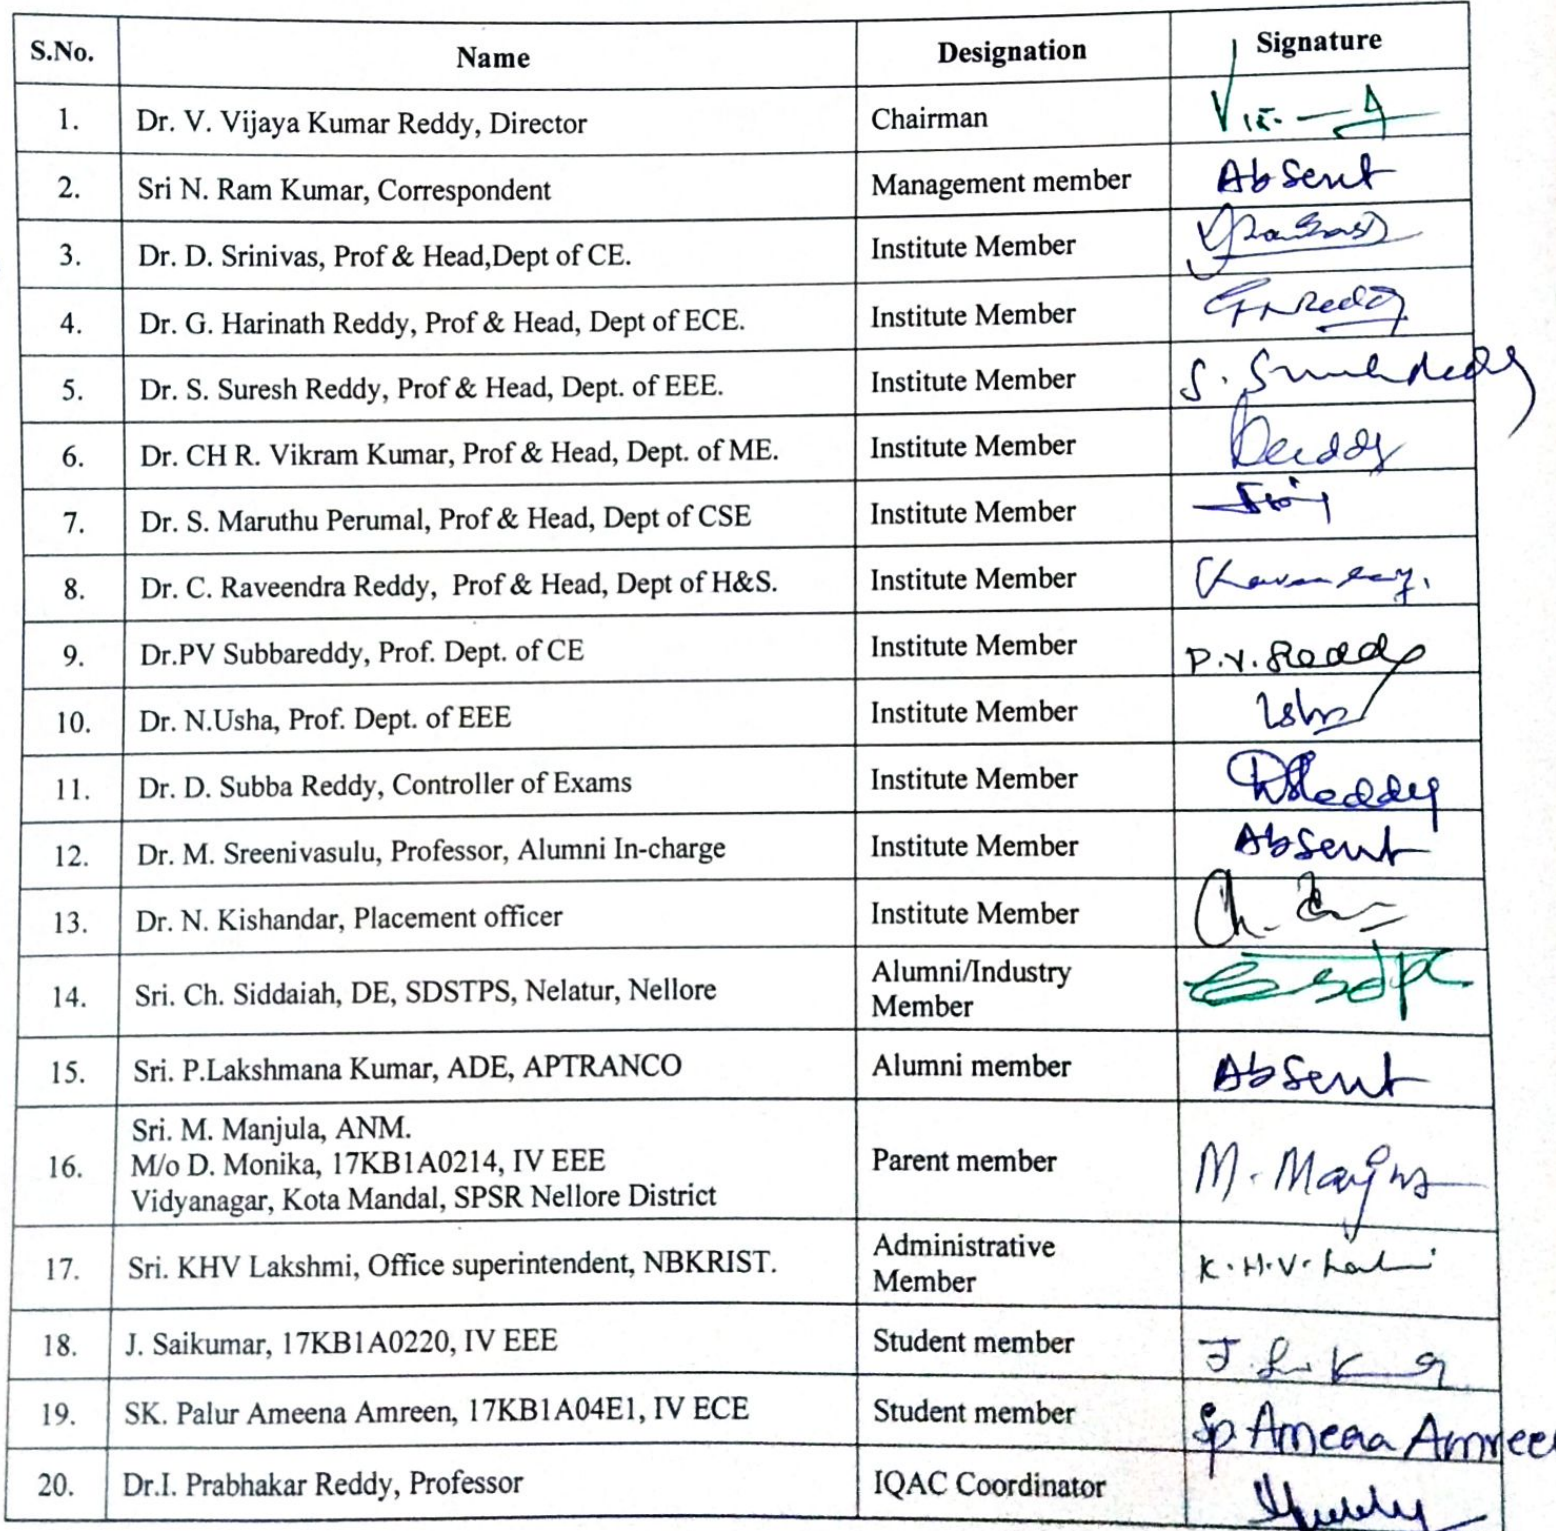 S.No. Name Designation Signature
1. Dr. V. Vijaya Kumar Reddy, Director Chairman
2. Sri N. Ram Kumar, Correspondent Management member Absent
3. Dr. D. Srinivas, Prof & Head,Dept of CE. Institute Member
4. Dr. G. Harinath Reddy, Prof & Head, Dept of ECE. Institute Member GNReddy
5. Dr. S. Suresh Reddy, Prof & Head, Dept. of EEE. Institute Member S. Suresh Reddy
6. Dr. CH R. Vikram Kumar, Prof & Head, Dept. of ME. Institute Member
7. Dr. S. Maruthu Perumal, Prof & Head, Dept of CSE Institute Member
8. Dr. C. Raveendra Reddy, Prof & Head, Dept of H&S. Institute Member
9. Dr.PV Subbareddy, Prof. Dept. of CE Institute Member P.V. Reddy
10. Dr. N.Usha, Prof. Dept. of EEE Institute Member Usha
11. Dr. D. Subba Reddy, Controller of Exams Institute Member DSReddy
12. Dr. M. Sreenivasulu, Professor, Alumni In-charge Institute Member Absent
13. Dr. N. Kishandar, Placement officer Institute Member
14. Sri. Ch. Siddaiah, DE, SDSTPS, Nelatur, Nellore Alumni/Industry
Member
15. Sri. P.Lakshmana Kumar, ADE, APTRANCO Alumni member Absent
Sri. M. Manjula, ANM.
16. M/o D. Monika, 17KB1A0214, IV EEE Parent member M. Manjula
Vidyanagar, Kota Mandal, SPSR Nellore District
17. Sri. KHV Lakshmi, Office superintendent, NBKRIST. Administrative K.H.V. Lakshmi
Member
18. J. Saikumar, 17KB1A0220, IV EEE Student member
19. SK. Palur Ameena Amreen, 17KB1A04E1, IV ECE Student member Sp Ameena Amreen
20. Dr.I. Prabhakar Reddy, Professor IQAC Coordinator